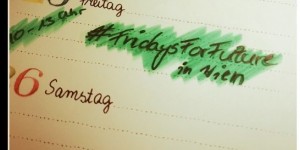 Freitag
0-15 Uhr
#FridaysForFuture
in Wien
6 Samstag